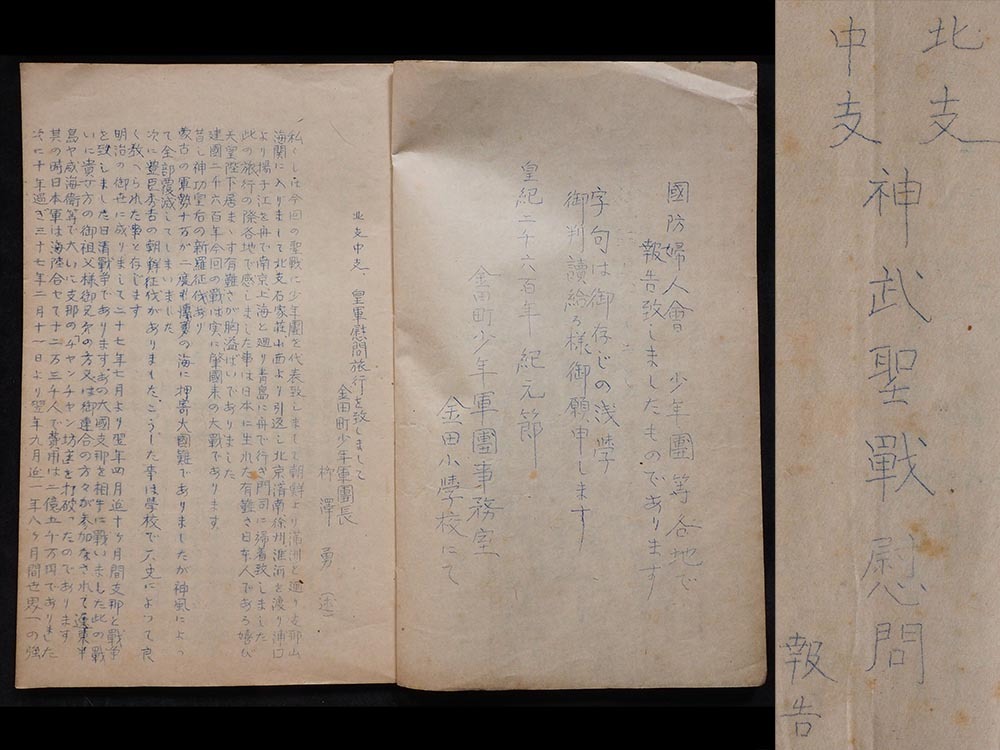 北支
中支
神武聖戰慰問
報告
國防婦人會 少年團等各地で
報告致しましたものであります
字句は御存じの浅学
御判讀給る様御願申します
皇紀二千六百年 紀元節
金田町少年軍團事務室
金田小学校にて
北支中支、皇軍慰問旅行を致しまして
金田町少年軍團長
柳澤 勇 (述)
私しは今回の聖戰に少年團を代表致しまして朝鮮より満洲と廻り支那山
海関に入りまして北支石家荘山西より引返し北京済南徐州淮河を渡り浦口
より揚子江を舟で南京上海と廻り青島に舟で行き門司に帰着致しました
此の旅行の際各地で感じました事は日本に生れた有難さ日本人である嬉び
天皇陛下居まゝす有難さが胸溢ぱいでありました
建國二千六百年今回の戰は実に肇國来の大戰であります
昔し神功皇后の新羅征伐あり
蒙古の軍勢十万が二度も博多の海に押寄大國難でありましたが神風によつ
て全部覆滅してしまいました
次に豊臣秀吉の朝鮮征伐がありました、こうした事は學校で六史によつて良
く教へられた事と存じます
明治の御世に成りまして二十七年七月より翌年四月迄十ヶ月間支那と戰爭
を致しました日清戰爭でありますあの大國支那を相手に戰いました此の戰
いに貴女方の御祖父様御兄弟の方又は御連合の方々が参加なされて遼東半
島や威海衛等で大いに支那のチャンチャン坊主を打破つたのであります
其の時日本軍は海陸合せて十二万三千人で費用は二億五千万円でありました
次に十年過ぎ三十七年二月十一日より翌年九月迄一年八ヶ月間世界一の強